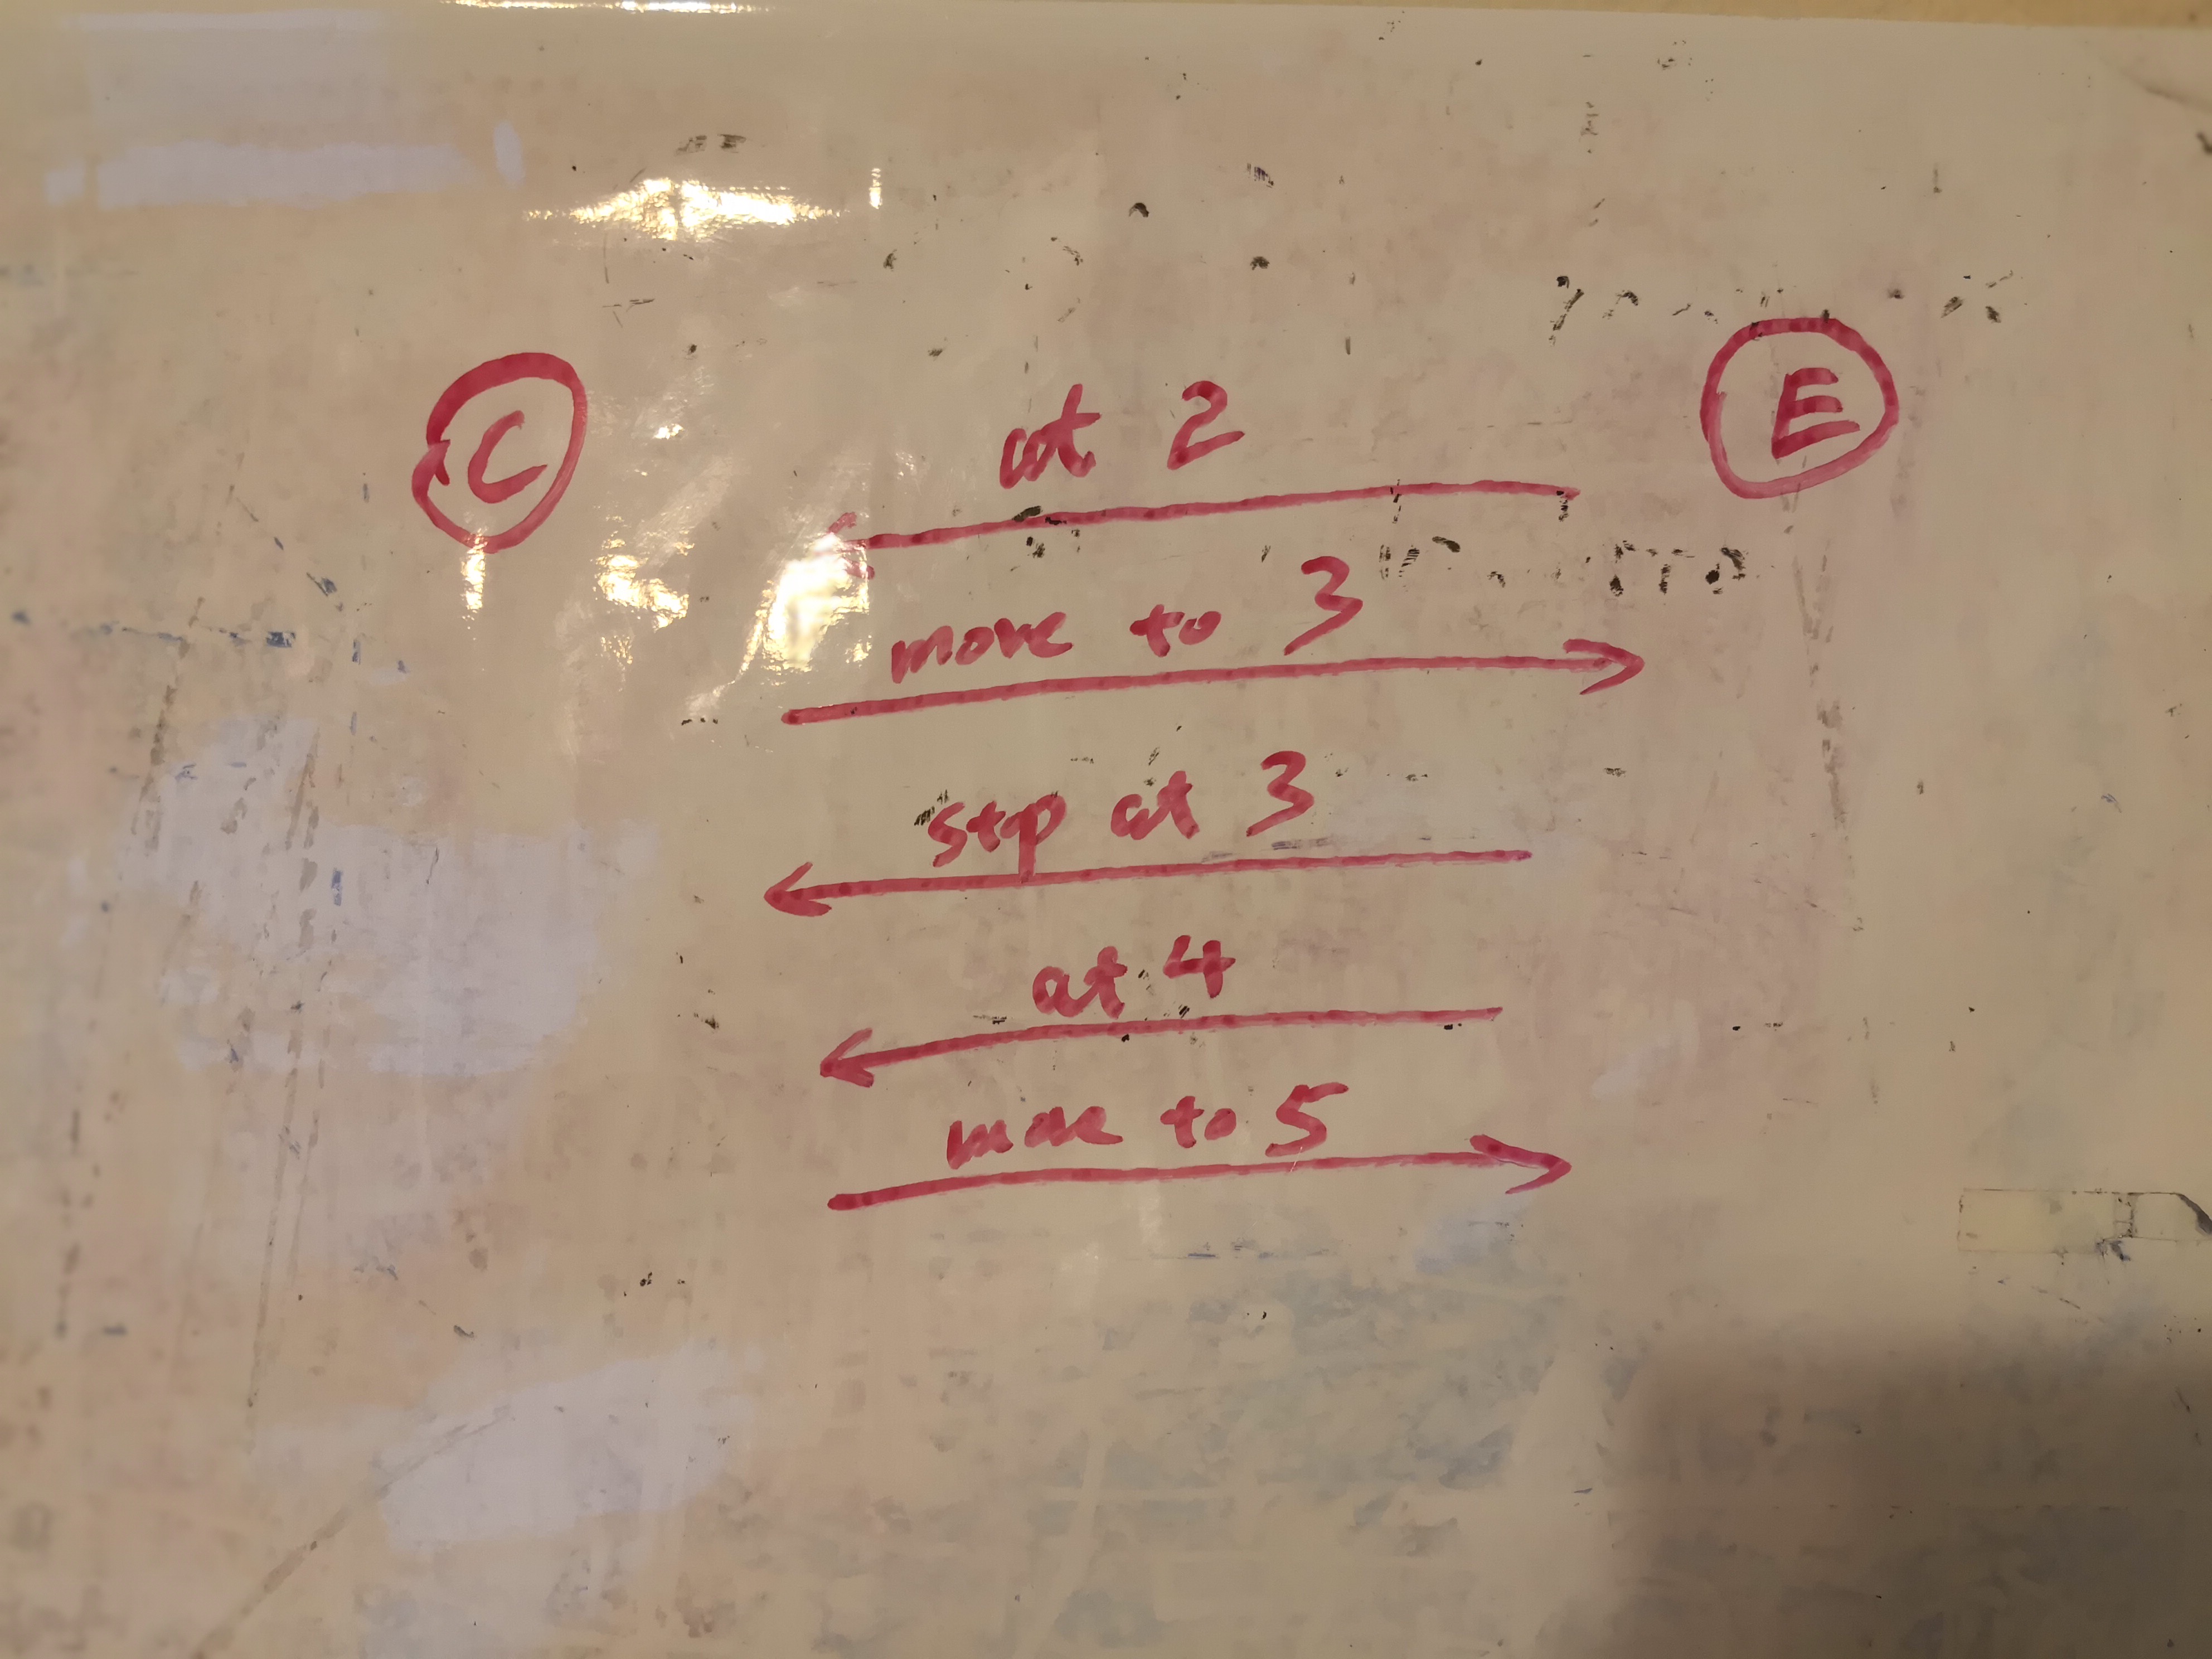 C
E
at 2
move to 3
stop at 3
at 4
move to 5